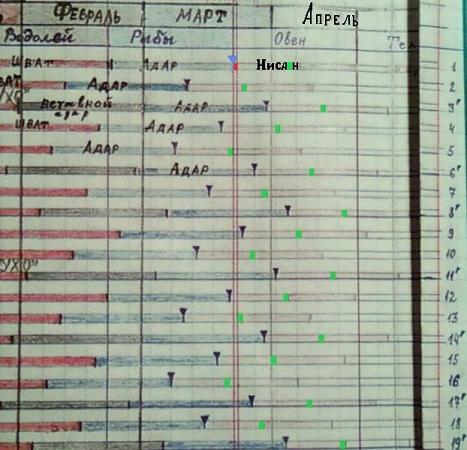 ФЕВРАЛЬ МАРТ АПРЕЛЬ
Водолей Рыбы Овен Тел
ШВАТ АДАР Нисан 1
ВАТ АДАР 2
УХО" вставной адар АДАР 3'
ШВАТ АДАР 4
АДАР 5
АДАР 6'
7
8'
9
10
УХО" 11'
12
13
14'
15
16
17'
18
19'